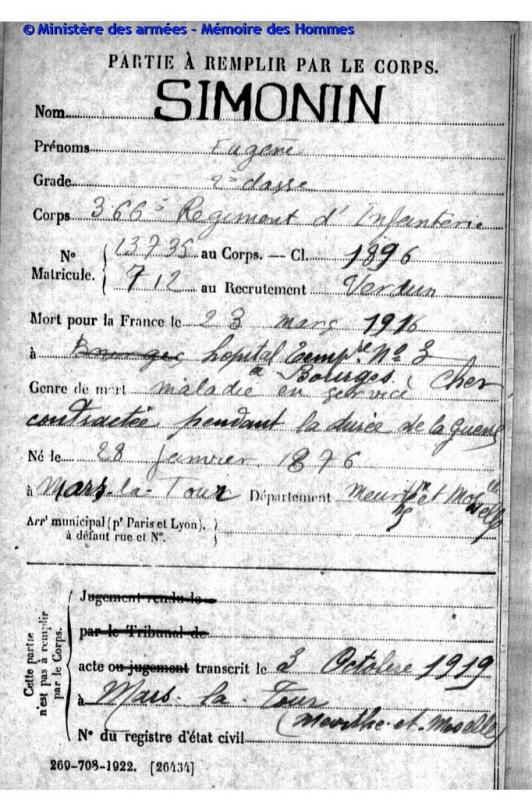 © Ministère des armées - Mémoire des Hommes
PARTIE À REMPLIR PAR LE CORPS.
Nom SIMONIN
Prénoms Eugène
Grade 2e classe
Corps 366e Régiment d'Infanterie
N° Matricule. { 13735 au Corps. — Cl. 1896
712 au Recrutement Verdun
Mort pour la France le 23 mars 1916
à Bourges, hopital Tempre No 3
à Bourges (Cher)
Genre de mort maladie en service
contractée pendant la durée de la guerre
Né le 28 janvier 1876
à Mars-la-Tour Département Meurthe et Moselle
Arrt municipal (pr Paris et Lyon), à défaut rue et N°. }
Cette partie n'est pas à remplir par le Corps. {
Jugement rendu le
par le Tribunal de
acte ou jugement transcrit le 3 Octobre 1919
à Mars-la-Tour
(Meurthe-et-Moselle)
N° du registre d'état civil
269-708-1922. [26434]